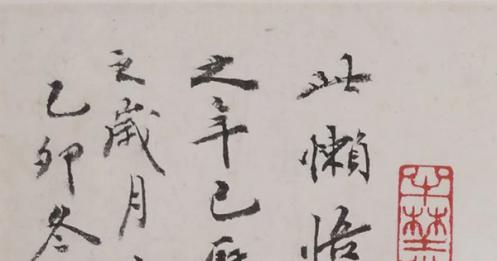 此懶悟
之年已
之歲月
乙卯冬